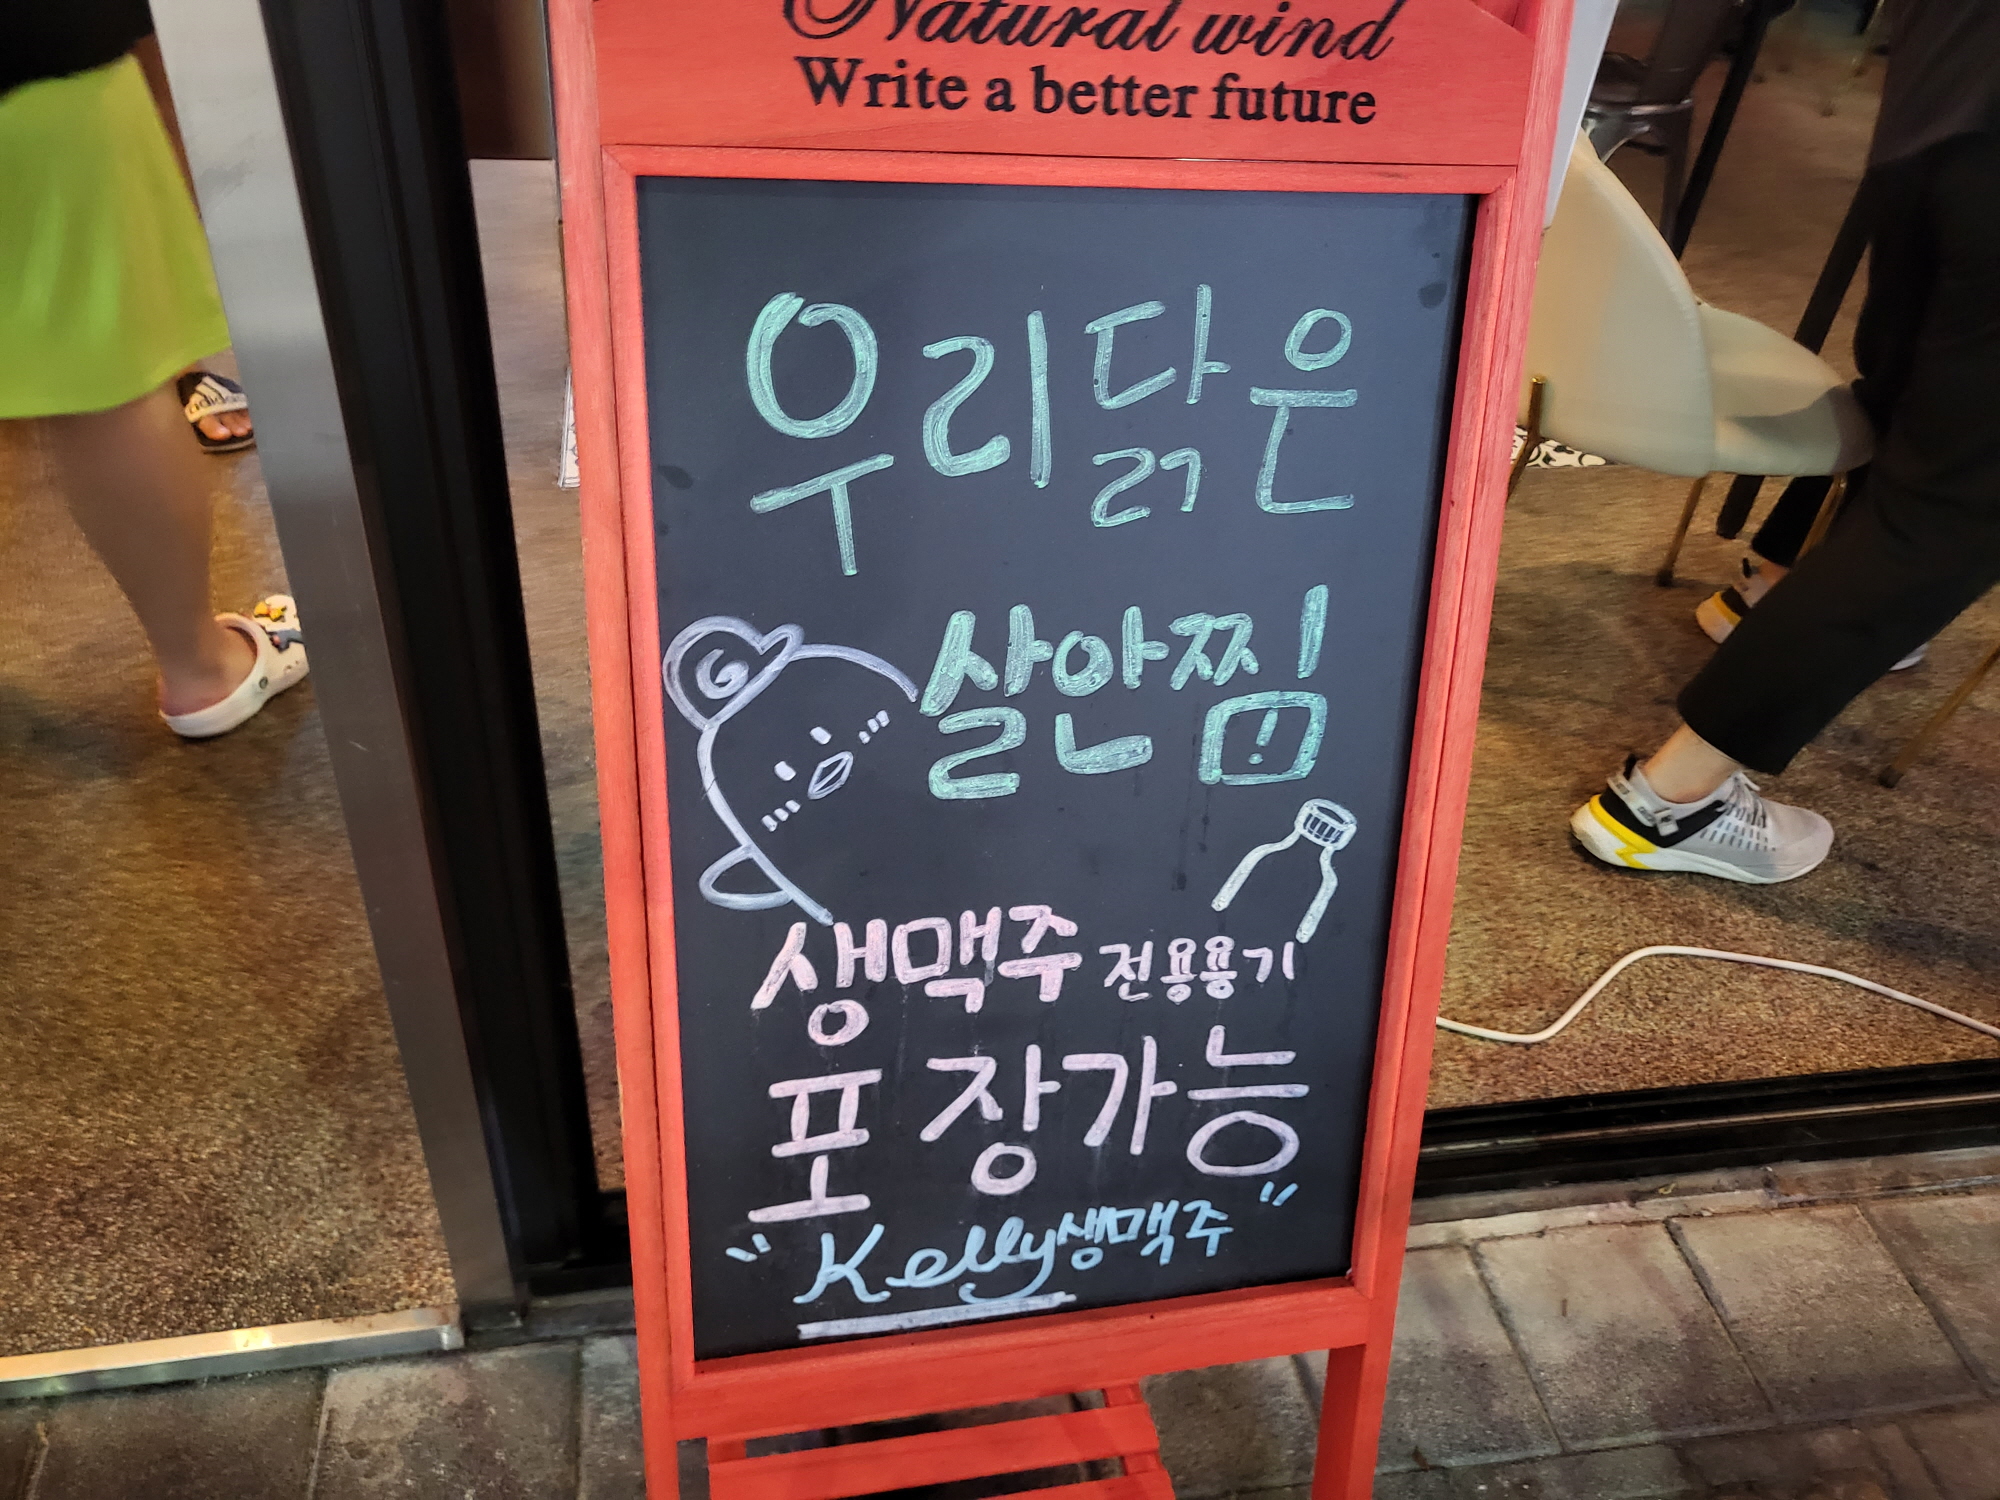 Natural wind
Write a better future
우리닭은
살안찜!
생맥주 전용용기
포장가능
"Kelly생맥주"
adidas